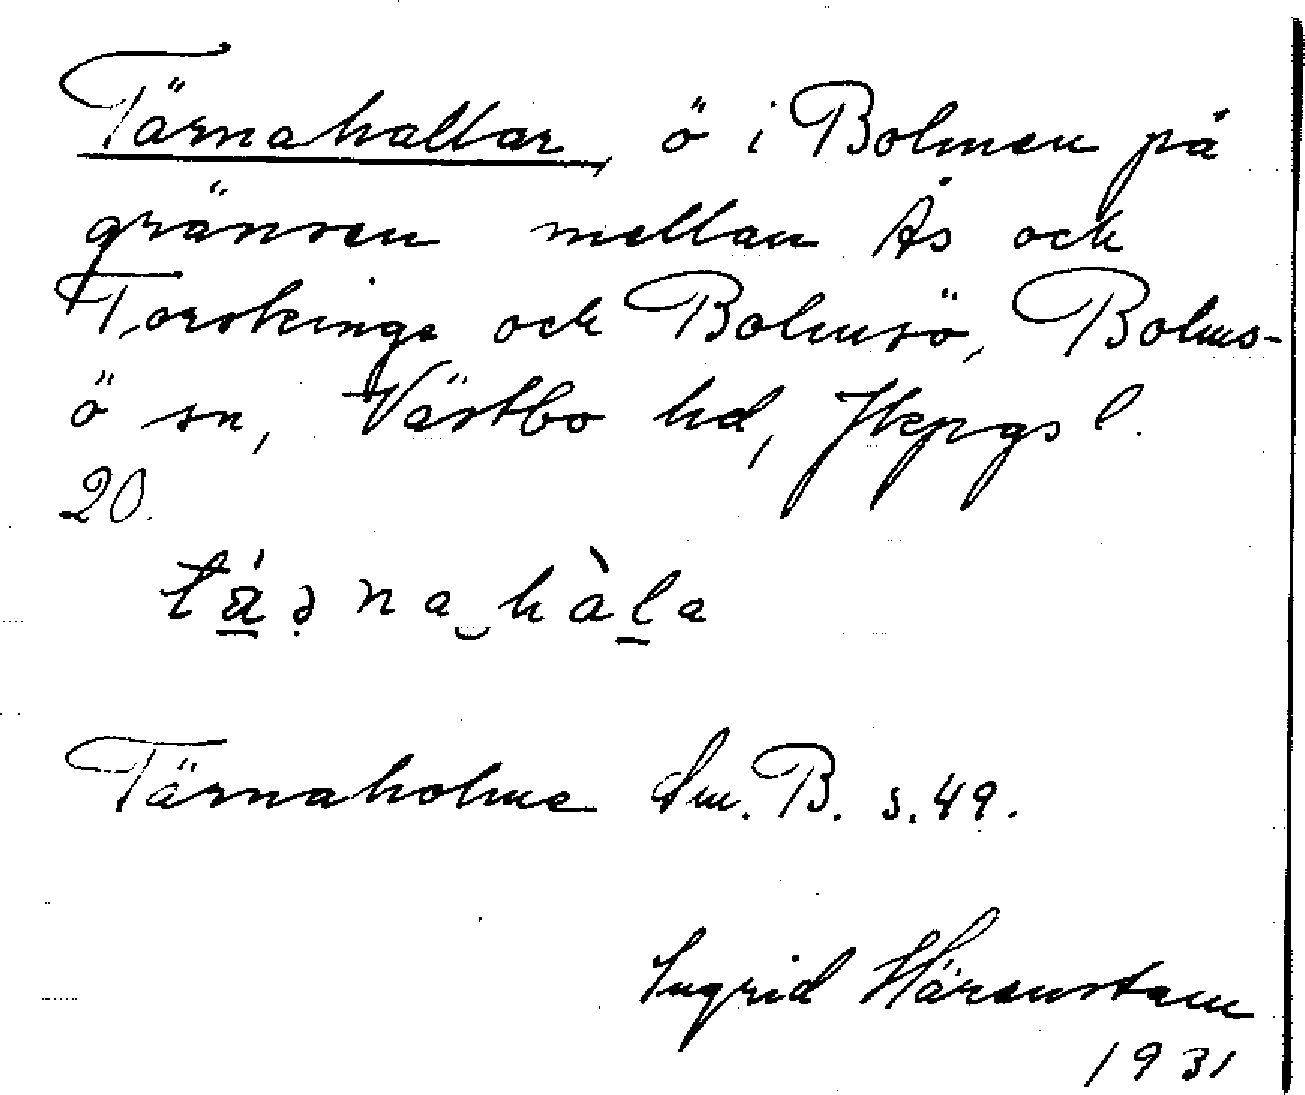 Tärnahallar, ö i Bolmen på
gränsen mellan Ås och
Torskinge och Bolmsö, Bolms-
ö sn, Västbo hd, Jkpgs l.
20.
Tärnaholme Sm. B. s. 49.
Ingrid Härenstam
1931